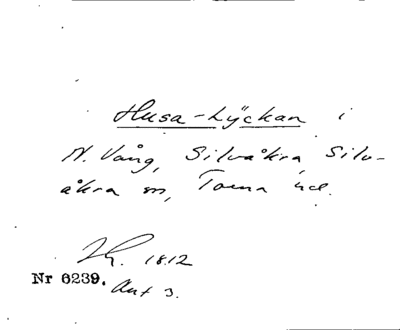 Husa-Lyckan i
N. Vång, Silvåkra, Silv-
åkra sn, Torna hd.
1812
Nr 6239. Akt 3.